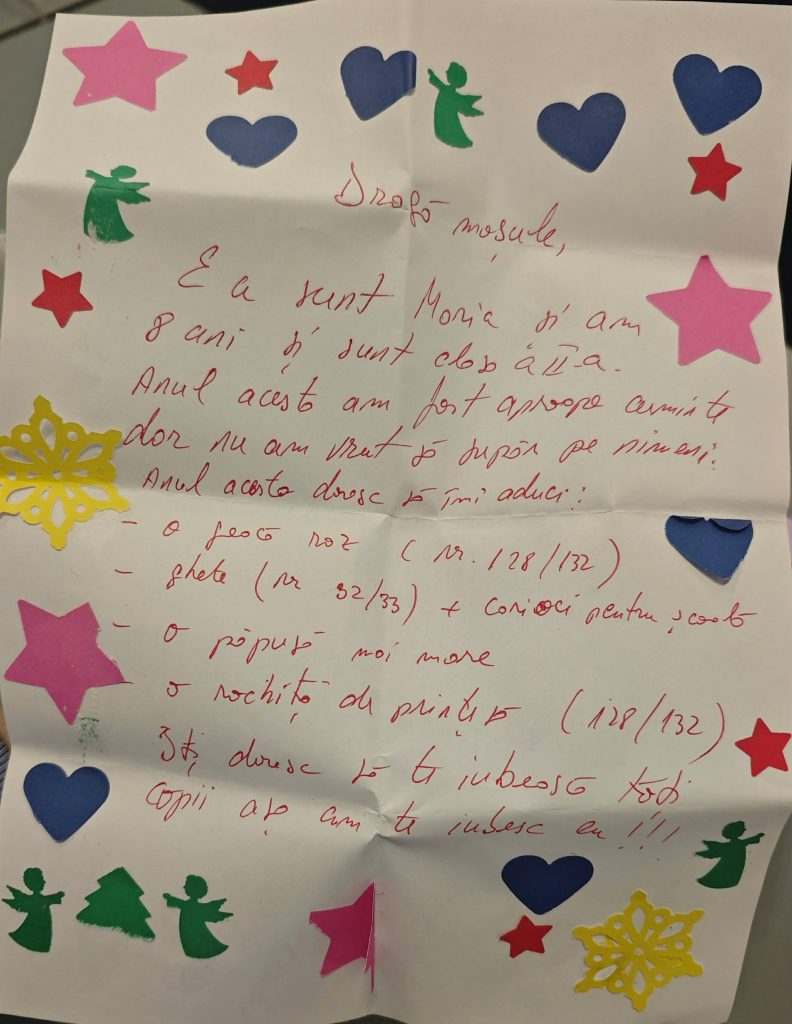 Dragă moșule,
Eu sunt Maria și am
8 ani și sunt clasa a II-a.
Anul acesta am fost aproape cuminte
dar nu am vrut să supăr pe nimeni.
Anul acesta doresc să îmi aduci:
- o geacă roz (nr. 128/132)
- ghete (nr 32/33) + carioci pentru școală
- o păpușă mai mare
- o rochiță de prințesă (128/132)
Îți doresc să te iubească toți
copii așa cum te iubesc eu!!!